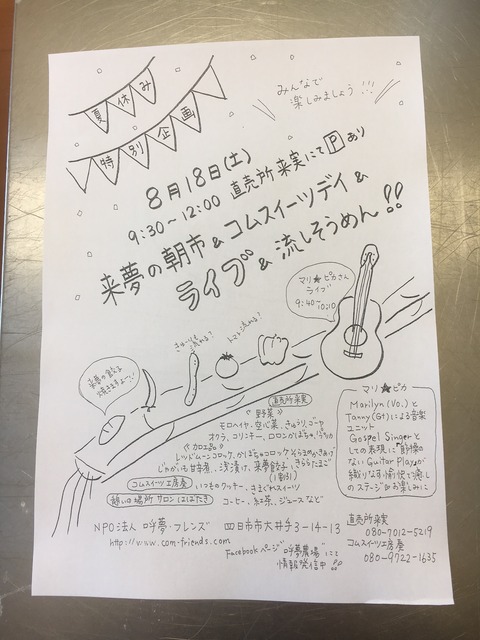 夏休み
特別企画
みんなで
楽しみましょう!!!
8月18日(土)
9:30~12:00 直売所来実にて Ⓟあり
来夢の朝市&コムスイーツデイ&
ライブ&流しそうめん!!
マリ★ピカさん
ライブ
9:40~10:10
きゅうりも流れる?
トマト流れる?
来夢の餃子
焼きますよ~!!
直売所来実
《野菜》
モロヘイヤ、空心菜、きゅうり、ゴーヤ
オクラ、コリンキー、ロロンかぼちゃ、パプリカ
《加工品》
レッドムーンコロッケ、かぼちゃコロッケ
じゃがいも甘辛煮、浅漬け、来夢餃子、きららたまご
(1割引)
コムスイーツ工房奏 いつものクッキー、きまぐれスイーツ
憩いの場所 サロン はばたき コーヒー、紅茶、ジュースなど
マリ★ピカ
Marilyn(Vo.)と
Tanny(Gt)による音楽
ユニット
Gospel Singerと
しての表現に"節操の
ない Guitar Play"が
織りなす愉快で癒し
のステージをお楽しみに
NPO法人 呼夢・フレンズ 四日市市大井手3-14-13
http://www.com-friends.com
Facebookページ"呼夢農場"にて
情報発信中!!
直売所来実
080-7012-5219
コムスイーツ工房奏
080-9722-1635